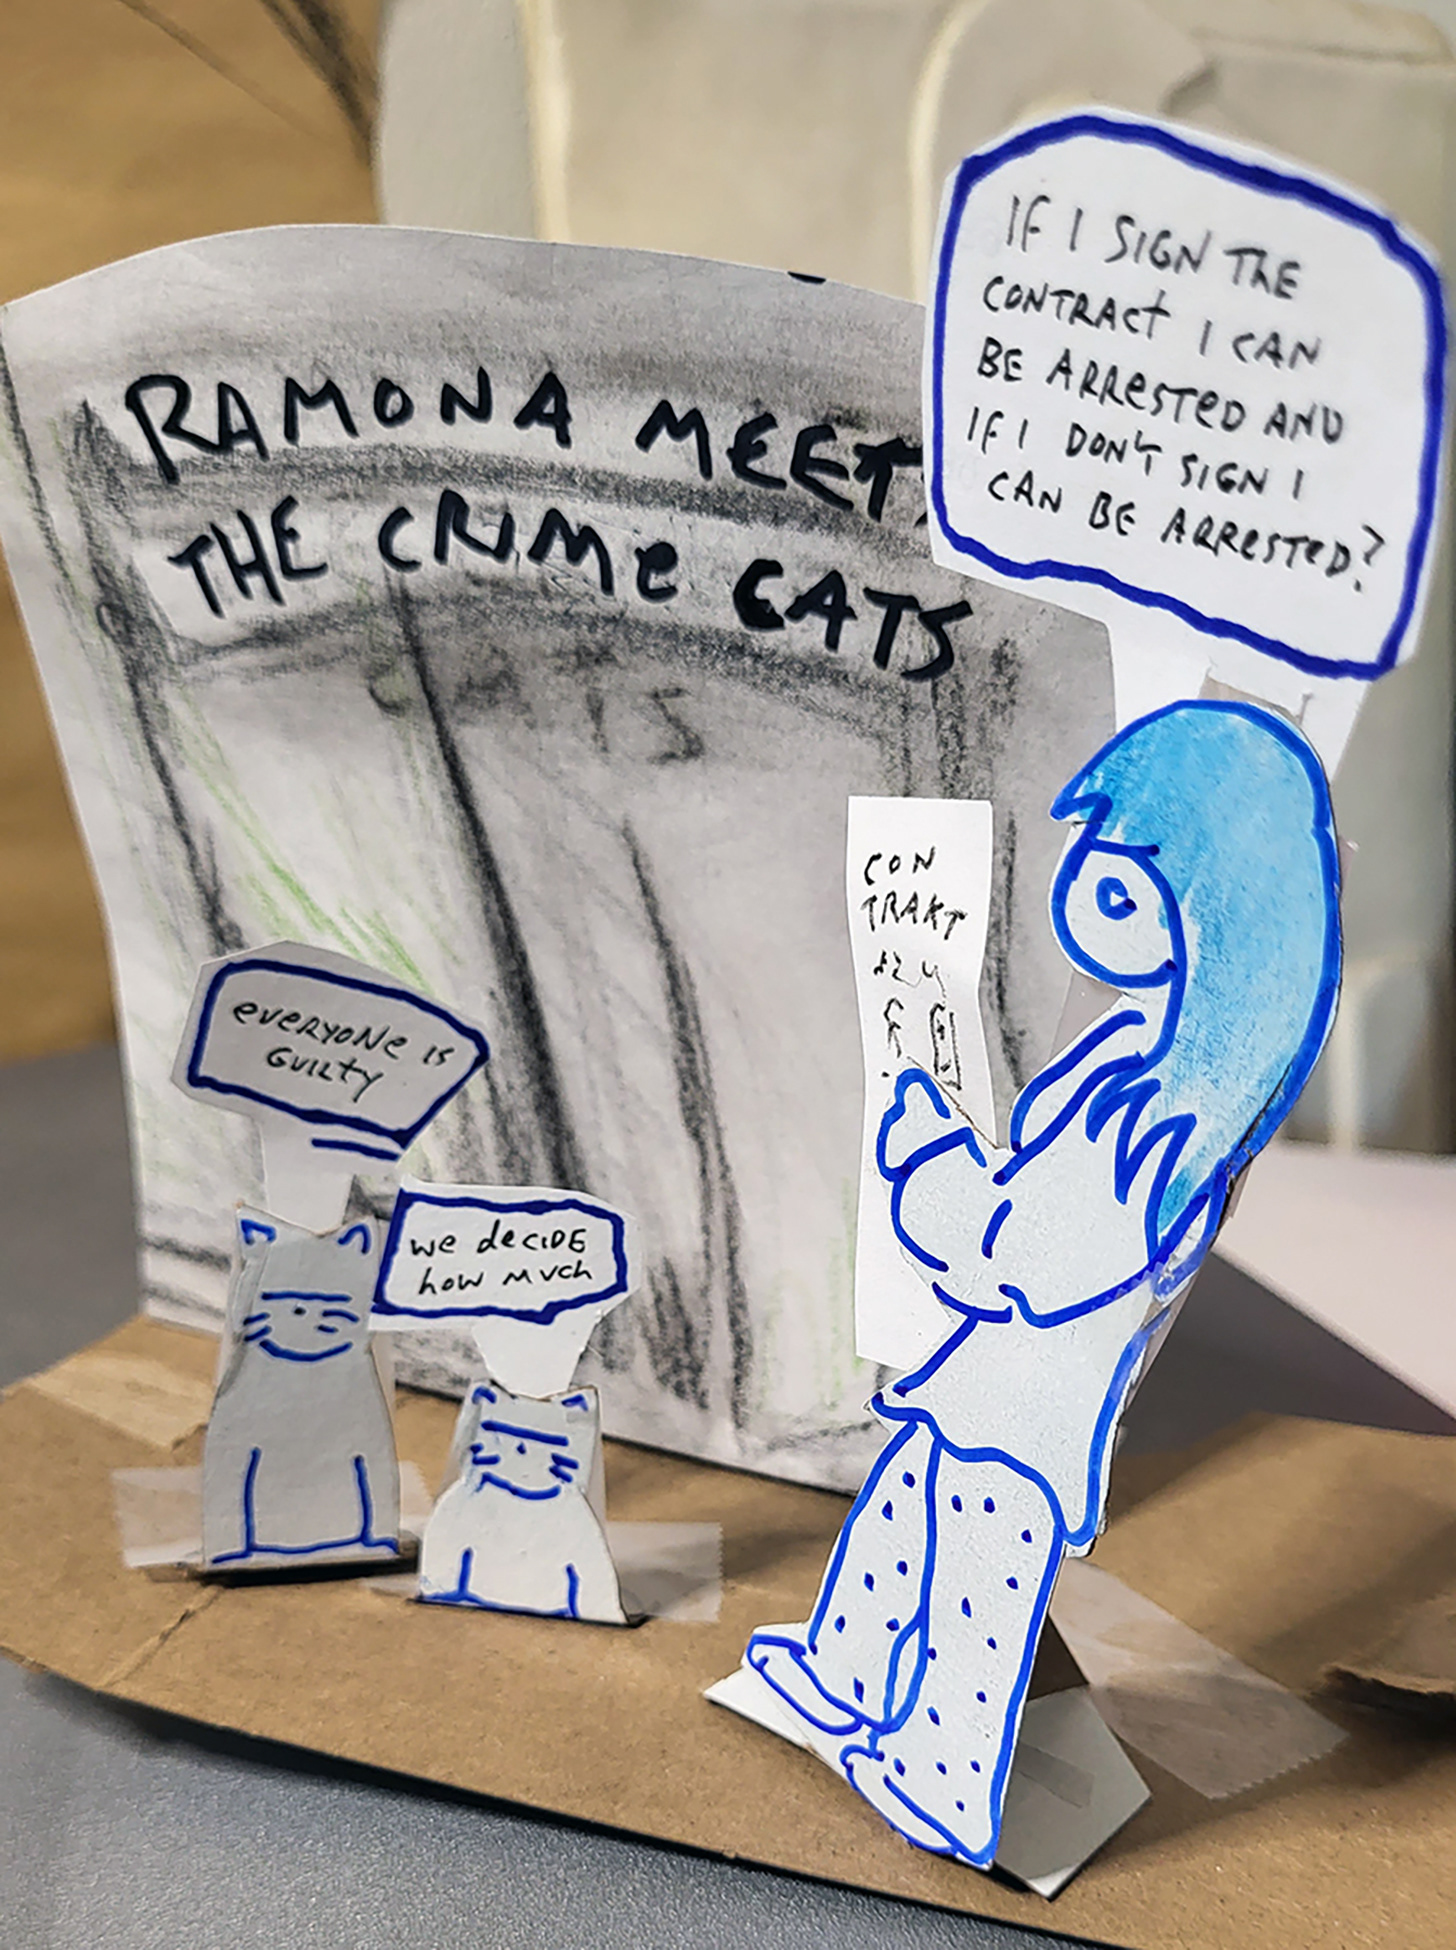 RAMONA MEETS
THE CRIME CATS
IF I SIGN THE
CONTRACT I CAN
BE ARRESTED AND
IF I DON'T SIGN I
CAN BE ARRESTED?
CON
TRAKT
everyoNe is
GUILTY
we decIDE
how much
15